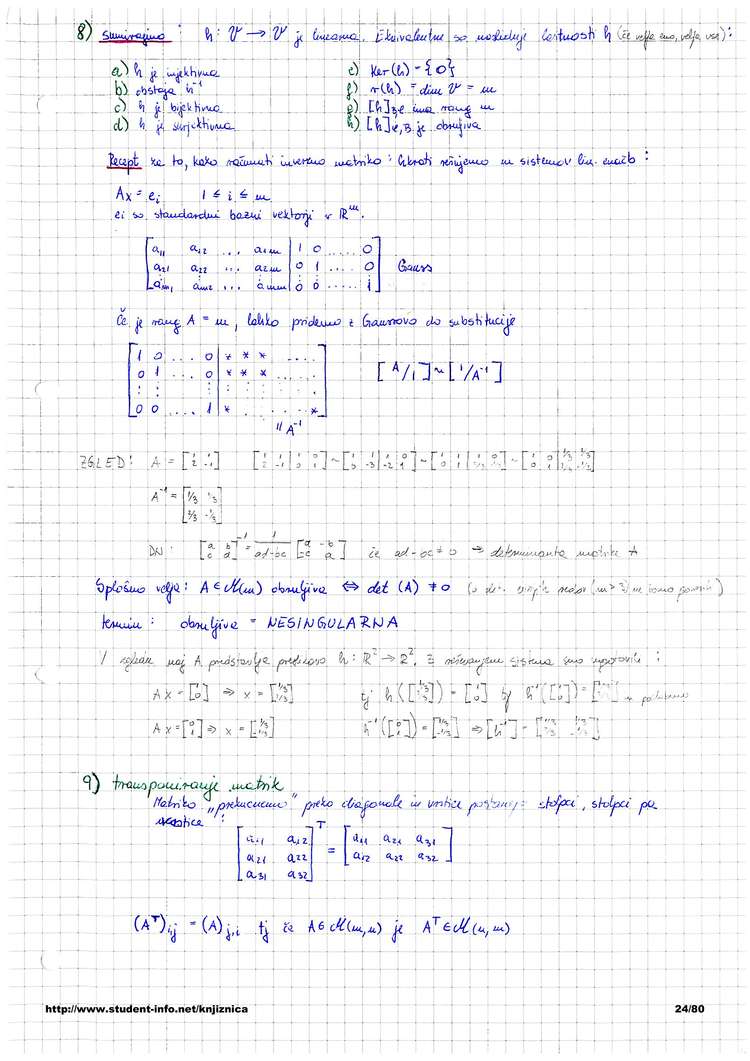 8) Sumirajmo : h: V → V je linearna. Ekvivalentne so naslednje lastnosti h (če velja ena, velja vse):
a) h je injektivna
b) obstaja h⁻¹
c) h je bijektivna
d) h je surjektivna
e) Ker(h) = {0}
f) r(h) = dim V = m
g) [h]B,C ima rang m
h) [h]C,B je obrnljiva
Recept za to, kako računati inverzno matriko: hkrati rešujemo m sistemov lin. enačb :
Ax = ei 1 ≤ i ≤ m
ei so standardni bazni vektorji v ℝᵐ.
[a11 a12 ... a1m | 1 0 ..... 0
a21 a22 ... a2m | 0 1 .... 0
am1 am2 ... amm | 0 0 ..... 1] Gauss
Če je rang A = m, lahko pridemo z Gaussovo do substitucije
[1 0 .... 0 | * * * ....
0 1 .... 0 | * * * .....
: : : : : : :
0 0 .... 1 | * ...... *] [A/I] ~ [I/A⁻¹]
|| A⁻¹
ZGLED: A = [1 1
2 -1] [1 1 | 1 0
2 -1 | 0 1] ~ [1 1 | 1 0
0 -3 | -2 1] ~ ~ [1 0 | 1/3 1/3
A⁻¹ = [1/3 1/3
2/3 -1/3]
DN: [a b
c d]⁻¹ = 1/ad-bc [a -b
-c a] če ad-bc ≠ 0 → determinanta matrike A
Splošno velja: A ∈ M(m) obrnljiva ⇔ det (A) ≠ 0
termin : obrnljiva = NESINGULARNA
naj A predstavlja preslikavo h: ℝ² → ℝ². Z reševanjem sistema smo ugotovili :
Ax = [1
0] ⇒ x = [1/3
2/3] tj h([1/3
2/3]) = [1
0] tj h⁻¹([1
0]) =
Ax = [0
1] ⇒ x = [1/3
-1/3] h⁻¹([0
1]) = [1/3
-1/3] ⇒ [h⁻¹] =
9) transponiranje matrik
Matriko „prekucnemo" preko diagonale in vrstice postanejo stolpci, stolpci pa
vrstice :
[a11 a12
a21 a22
a31 a32]ᵀ = [a11 a21 a31
a12 a22 a32]
(Aᵀ)i,j = (A)j,i tj če A ∈ M(m,n) je Aᵀ ∈ M(n,m)
http://www.student-info.net/knjiznica 24/80